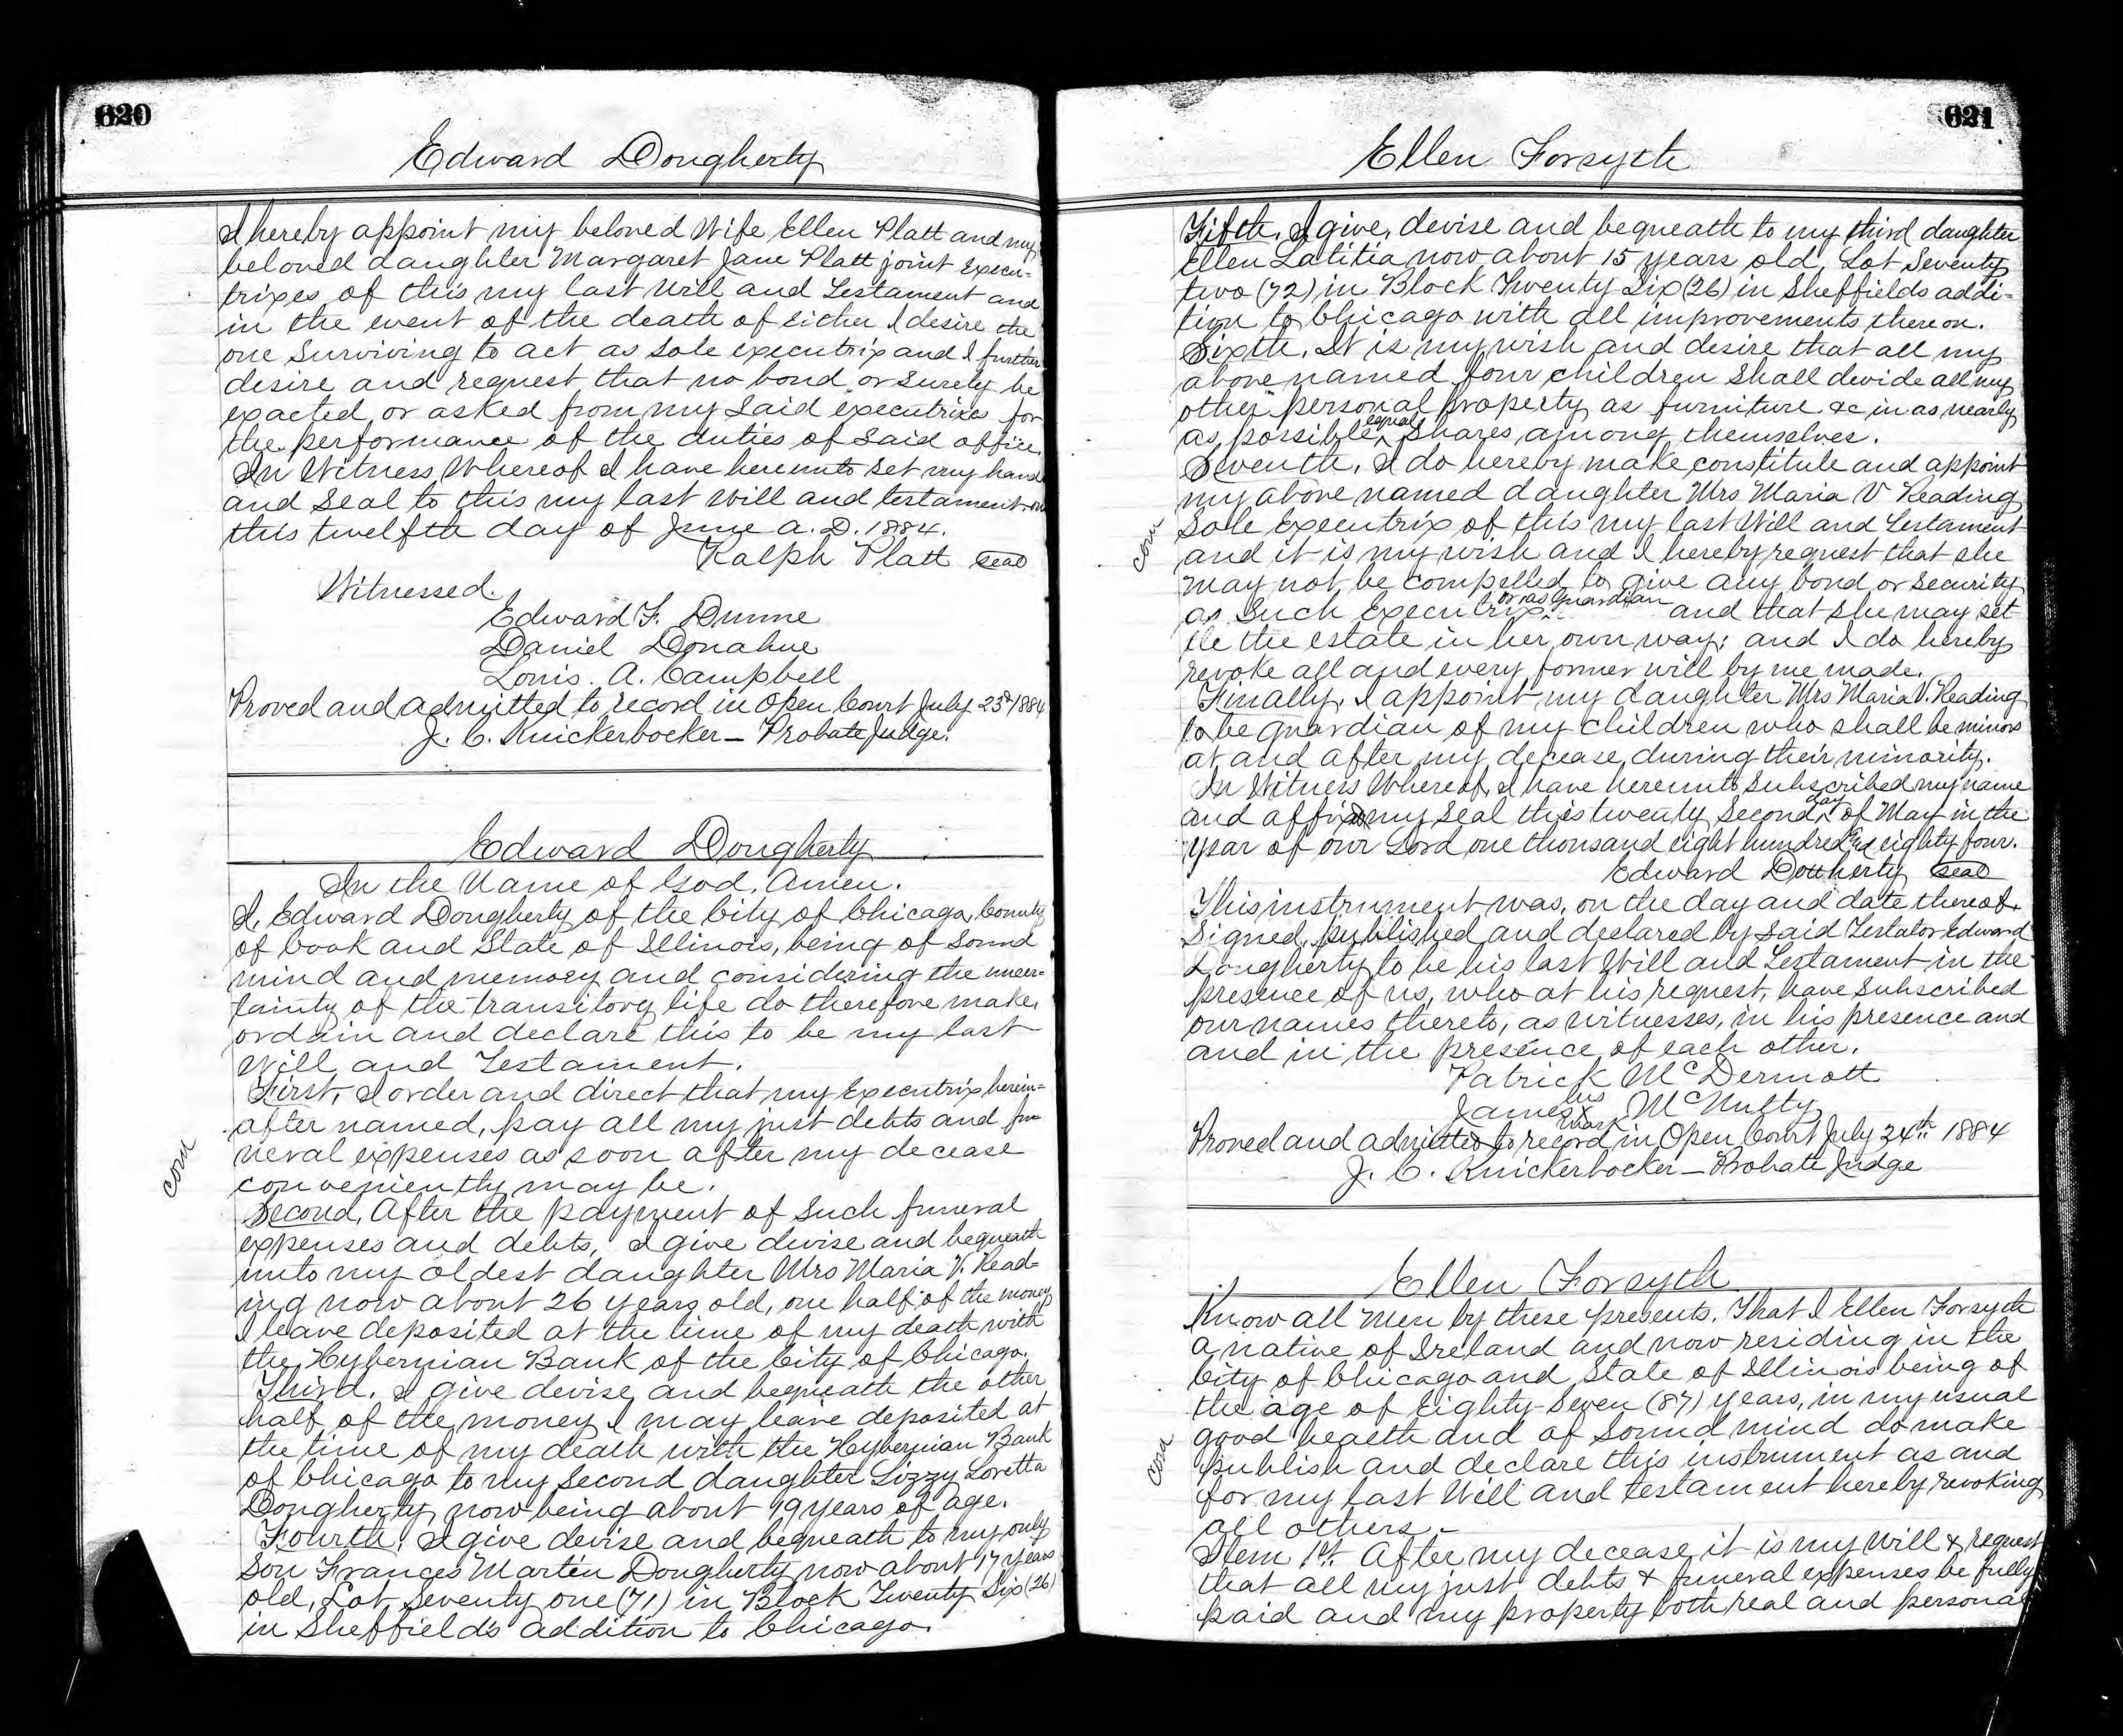 620
Edward Dougherty
I hereby appoint my beloved Wife Ellen Platt and my
beloved daughter Margaret Jane Platt joint Execu-
trixes of this my last Will and Testament and
in the event of the death of either I desire the
one surviving to act as sole executrix and I further
desire and request that no bond or surety be
exacted or asked from my said executrixes for
the performance of the duties of said office.
In Witness Whereof I have hereunto set my hand
and seal to this my last will and testament on
this twelfth day of June A.D. 1884.
Ralph Platt Seal
Witnessed.
Edward F. Dunne
Daniel Donahue
Louis. A. Campbell
Proved and admitted to record in Open Court July 23d 1884
J. C. Knickerbocker - Probate Judge.
Edward Dougherty
In the Name of God, Amen.
I, Edward Dougherty of the City of Chicago, County
of Cook and State of Illinois, being of sound
mind and memory and considering the uncer-
tainty of the transitory life do therefore make,
ordain and declare this to be my last
Will and Testament.
First, I order and direct that my Executrix herein-
after named, pay all my just debts and fu-
neral expenses as soon after my decease
conveniently may be.
Com
Second, After the payment of such funeral
expenses and debts, I give devise and bequeath
unto my oldest daughter Mrs Maria V. Read-
ing now about 26 years old, one half of the money
I leave deposited at the time of my death with
the Hybernian Bank of the City of Chicago.
Third. I give devise and bequeath the other
half of the money I may leave deposited at
the time of my death with the Hybernian Bank
of Chicago to my second daughter Lizzy Loretta
Dougherty, now being about 19 years of age.
Fourth. I give devise and bequeath to my only
son Frances Martin Dougherty now about 17 years
old, Lot Seventy one (71) in Block Twenty Six (26)
in Sheffield's addition to Chicago.
621
Ellen Forsyth
Fifth, I give, devise and bequeath to my third daughter
Ellen Latitia now about 15 years old, Lot Seventy
two (72) in Block Twenty Six (26) in Sheffields addi-
tion to Chicago with all improvements thereon.
Sixth, It is my wish and desire that all my
above named four children shall devide all my
other personal property as furniture &c in as nearly
as possible equal shares among themselves.
Seventh, I do hereby make constitute and appoint
my above named daughter Mrs Maria V Reading
Sole Executrix of this my last Will and Testament
Com
and it is my wish and I hereby request that she
may not be compelled to give any bond or security
as such Executrix or as guardian and that she may set
tle the estate in her own way; and I do hereby
revoke all and every former will by me made.
Finally, I appoint my daughter Mrs Maria V. Reading
to be guardian of my children who shall be minors
at and after my decease, during their minority.
In Witness Whereof, I have hereunto subscribed my name
and affixed my seal this twenty second day of May in the
year of our Lord one thousand eight hundred and eighty four.
Edward Dougherty Seal
This instrument was, on the day and date thereof,
signed, published and declared by said Testator Edward
Dougherty to be his last Will and Testament in the
presence of us, who at his request, have subscribed
our names thereto, as witnesses, in his presence and
and in the presence of each other.
Patrick McDermott
James his X mark McNulty
Proved and admitted to record in Open Court July 24th 1884
J. C. Knickerbocker - Probate Judge
Ellen Forsyth
Know all men by these presents. That I Ellen Forsyth
a native of Ireland and now residing in the
City of Chicago and State of Illinois being of
the age of Eighty-Seven (87) years, in my usual
good health and of sound mind do make
Com
publish and declare this instrument as and
for my last Will and testament hereby revoking
all others.-
Item 1st. After my decease it is my will & request
that all my just debts & funeral expenses be fully
paid and my property both real and personal